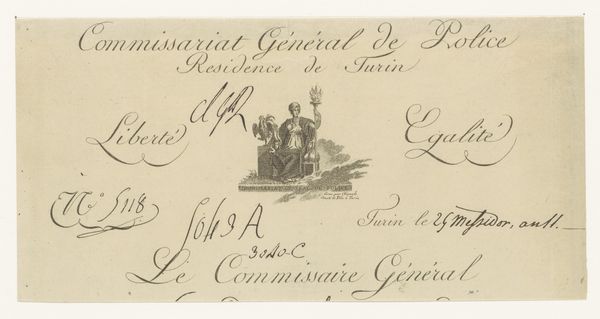 Commissariat Général de Police
Residence de Turin
Liberté
Egalité
COMMISSARIAT GENERAL DE POLICE
N.º 5118
5049 A
3040-C
Turin le 25 Messidor, an 11.
Le Commissaire Général